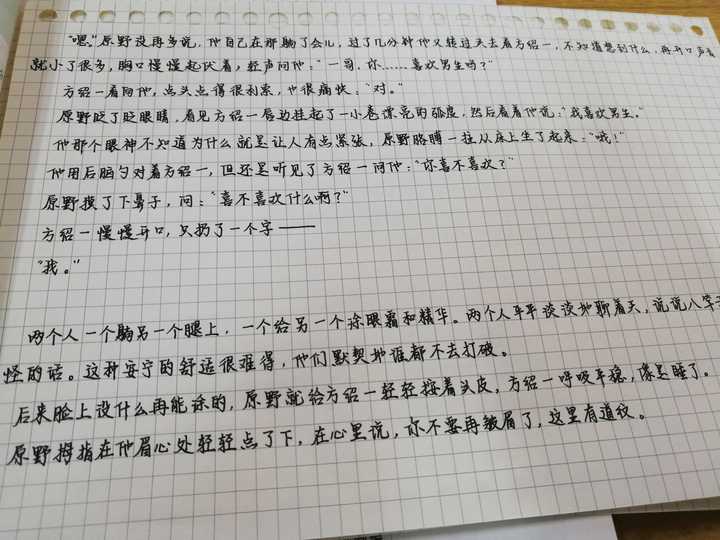 “嗯。”原野没再多说，他自己在那躺了会儿，过了几分钟他又转过头去看方绍一，不知道想到什么，再开口声音
就小了很多，胸口慢慢起伏着，轻声问他：“一哥，你……喜欢男生吗？”
方绍一看向他，点头点得很利索，也很痛快：“对。”
原野眨了眨眼睛，看见方绍一唇边挂起了一小卷漂亮的弧度，然后看着他说：“我喜欢男生。”
他那个眼神不知道为什么就是让人有点紧张，原野胳膊一拄从床上坐了起来：“哦！”
他用后脑勺对着方绍一，但还是听见了方绍一问他：“你喜不喜欢？”
原野摸了下鼻子，问：“喜不喜欢什么啊？”
方绍一慢慢开口，只扔了一个字——
“我。”
两个人一个躺另一个腿上，一个给另一个涂眼霜和精华。两个人平平淡淡地聊着天，说说八字
怪的话。这种安宁的舒适很难得，他们默契地谁都不去打破。
后来脸上没什么再能涂的，原野就给方绍一轻轻按着头皮，方绍一呼吸平稳，像是睡了。
原野拇指在他眉心处轻轻点了下，在心里说，你不要再皱眉了，这里有道纹。